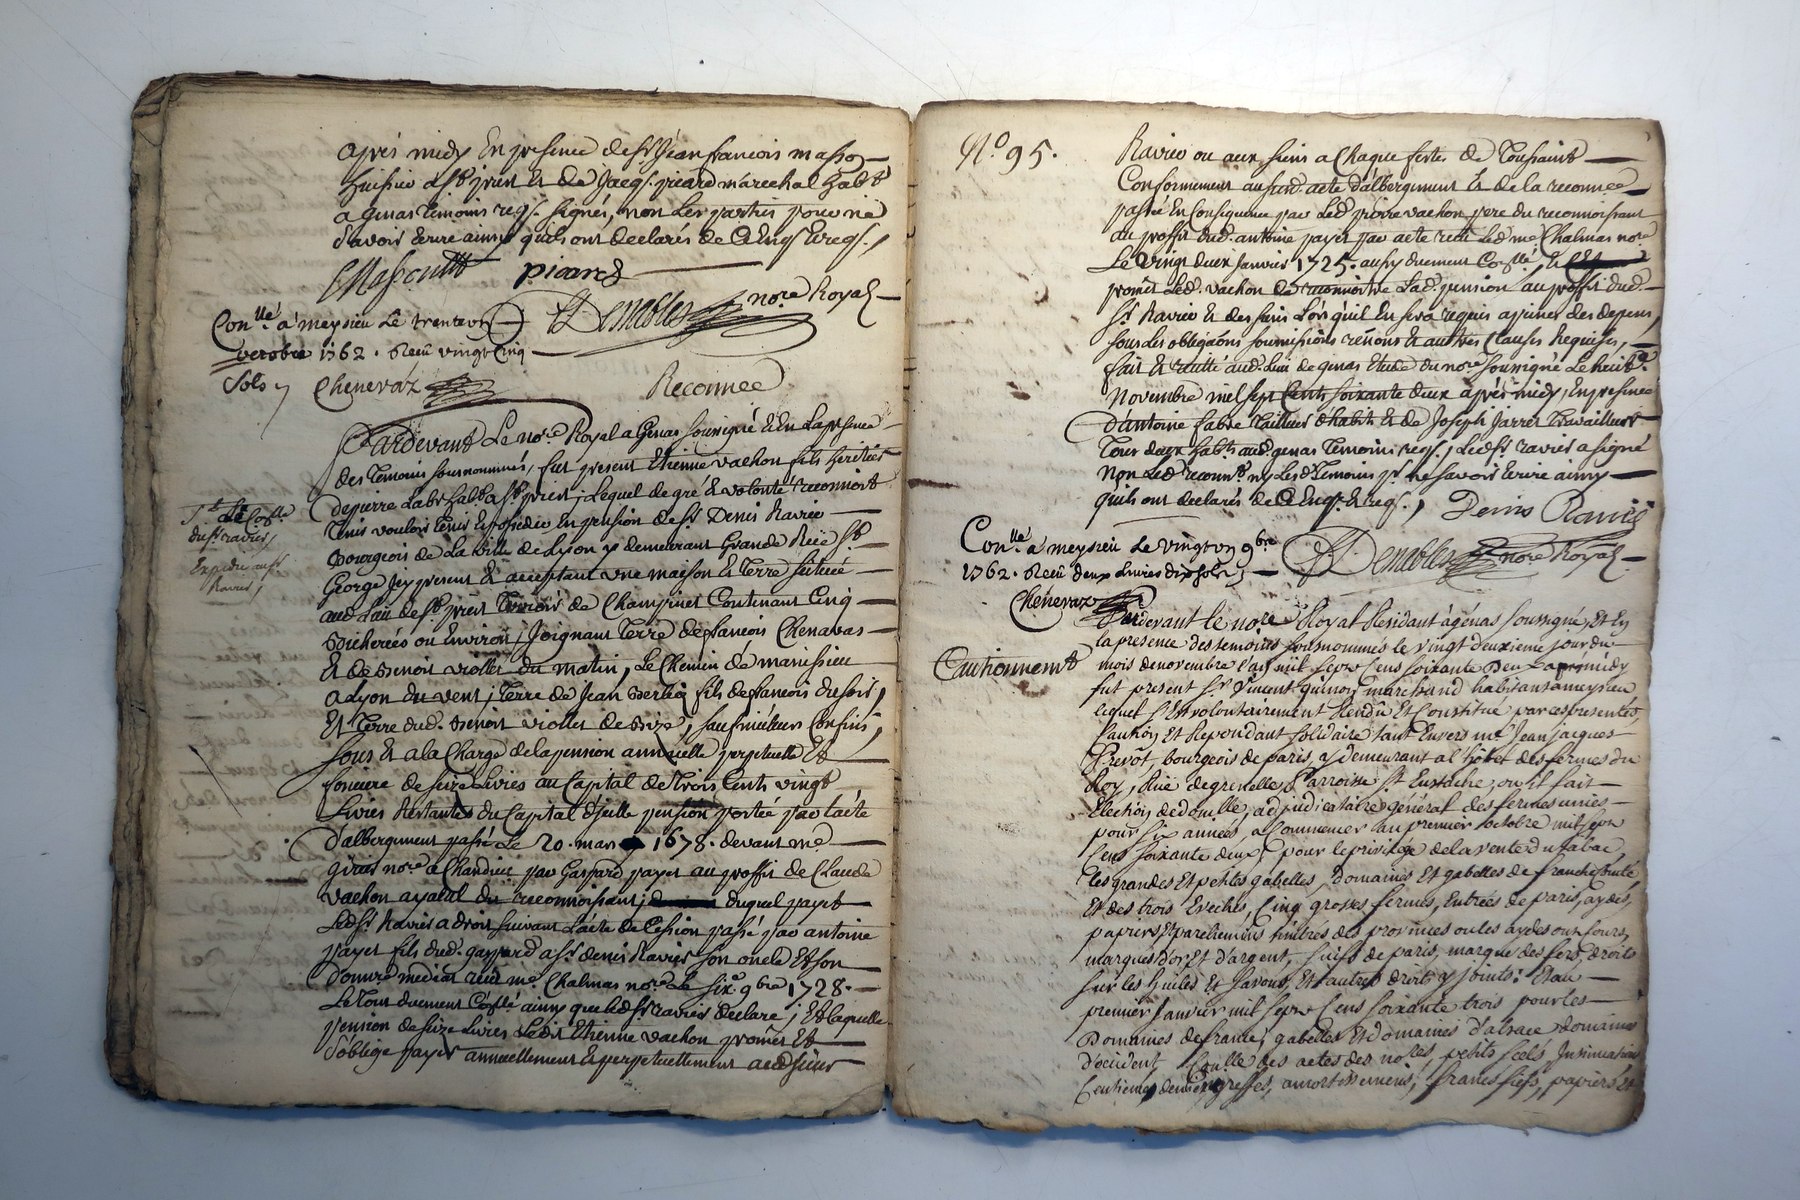 après midy En presence de Sr Jean francois masson
huissier a St priest & de Jacqs. picard maréchal habt
a genas temoins reqs. signés, non les parties pour ne
Savoir Ecrire ainsy quils ont declarés de ce Enqs & reqs.
picard
DDemables nore Royal
Conllé a meysieu Le trente un
octobre 1762. Reçu vingt Cinq
Sols
Chenevaz
Reconnce
Pardevant Le nore Royal a Genas soussigné & En La presence
des temoins sousnommés, fut present Etienne vachon fils heritier
de pierre Labr habt a St priest, Lequel de gré & volonté reconnoit
tenir vouloir tenir & posseder en pension de Sr Denis Ravier
Bourgeois de La ville de Lyon y demeurant Grande Rue St
George icy present & acceptant une maison & Terre scituée
aud. Lieu de St priest Terroir de Champinet Contenant Cinq
Bicherées ou Environ; Joignant Terre de francois Chenavas
& de Benoit viollet du matin, Le Chemin de manissieu
a Lyon du vent; terre de Jean fils de francois du soir,
Et terre dud. Benoit viollet de bize, sauf meilleurs Confins,
Sous & a la Charge de la pension annuelle perpetuelle Et
fonciere de seize Livres au Capital de Trois Cents vingt
Livres Restantes du Capital d'jcelle pension portée par lacte
d'albergement passé Le 20. mars 1678. devant me
nore a Chandieu par Gaspard payet au proffit de Claude
vachon ayeul du reconnoissant; duquel payet
Ledsr Ravier a droit suivant L'acte de Cession passé par antoine
payet fils dud. gaspard a Sr denis Ravier son oncle Et son
reçu me Chalmas nore Le six 9bre 1728.
Le tout duement Conllé ainsy que led sr ravier declare; Et laquelle
pension de seize Livres Ledit Etienne vachon promet Et
s'oblige payer annuellement & perpetuellement aud sieur
du sr ravier,
Expedie au sr
Ravier,
No 95.
Ravier ou aux siens a Chaque festes de Toussaint
Conformement au susd. acte d'albergement & de la reconnce
passée En Consequence par Led. pierre vachon pere du reconnoissant
au proffit dud. antoine payet par acte reçu Led. me Chalmas nore
Le vingt deux Janvier 1725. aussy duement Conllé, &
promet Led. vachon de reconnoitre Lad. pension au proffit dud.
Sr Ravier & des siens Lorsquil En sera requis a peine des depens,
sous Les obligaons soumissions renons & autres Clauses requises,
fait & recitté aud. Lieu de genas Etude du nore soussigné Le huit
Novembre mil sept Cents soixante deux après midy, En presence
d'antoine fabre tailleur d'habits & de Joseph Jarret travailleur
tous deux habts aud. genas temoins reqs., Led sr ravier a signé
Non Led. reconnt ny Led. temoins pr ne savoir Ecrire ainsy
quils ont declarés de ce Enqs. & reqs.
Denis Ravier
Conllé a meysieu Le vingt un 9bre
1762. Reçu deux Livres dix sols
Chenevaz
DDemables nore Royal
Cautionnemt
Pardevant le nore Royal Residant a génas soussigné, Et En
la presence des temoins sousnommés le vingt deuxieme jour du
mois de novembre l'an mil sept cens soixante Deux apres midy
fut present Sr Vincent guinon marchand habitant a meysieu
lequel s'est volontairement Rendû Et Constitué par ces presentes,
Caution Et Repondant solidaire tant Envers me Jean jacques
Prevôt, bourgeois de paris, y demeurant a l'hôtel des fermes du
Roy, Rue de grenelle, Parroisse St Eustache, ou il fait
Election de domicille, adjudicataire général des fermes unies
pour six années, a Commencer au premier octobre mil sept
Cens soixante deux, pour le privilége de la vente du tabac,
les grandes Et petites gabelles, Domaines Et gabelles de franche Comté
Et des trois Evêchés, Cinq grosses fermes, Entrées de paris, aydes,
papiers Et parchemins timbrés des provinces ou les aydes ont Cours,
marques d'or Et d'argent, suifs de paris, marque des fers, droits
sur les huiles Et savons, Et autres droits y joints: Et au
premier Janvier mil sept Cens soixante trois pour les
Domaines de france, gabelles Et domaines d'alsace domaines
d'occident Conlle des actes des nores, petits scels, Insinuations
Centieme denier, greffes, amortissemens, francs fiefs, papiers Et